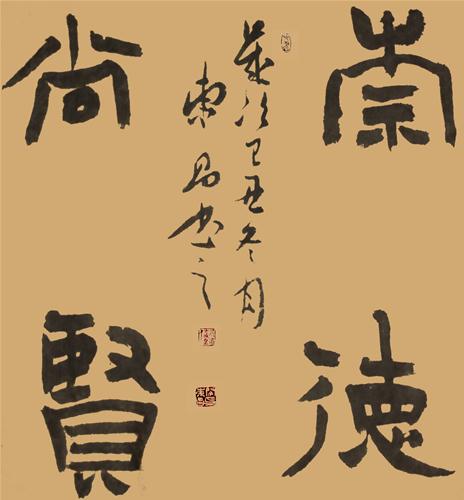 崇德
尚賢
歲次己丑冬月
東書之